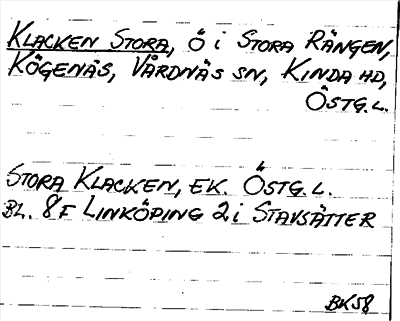 KLACKEN STORA, Ö i STORA RÄNGEN,
KÖGENÄS, VÅRDNÄS SN, KINDA HD,
ÖSTG.L.
STORA KLACKEN, EK. ÖSTG.L.
BL. 8F LINKÖPING 2i STAVSÄTTER
BK58